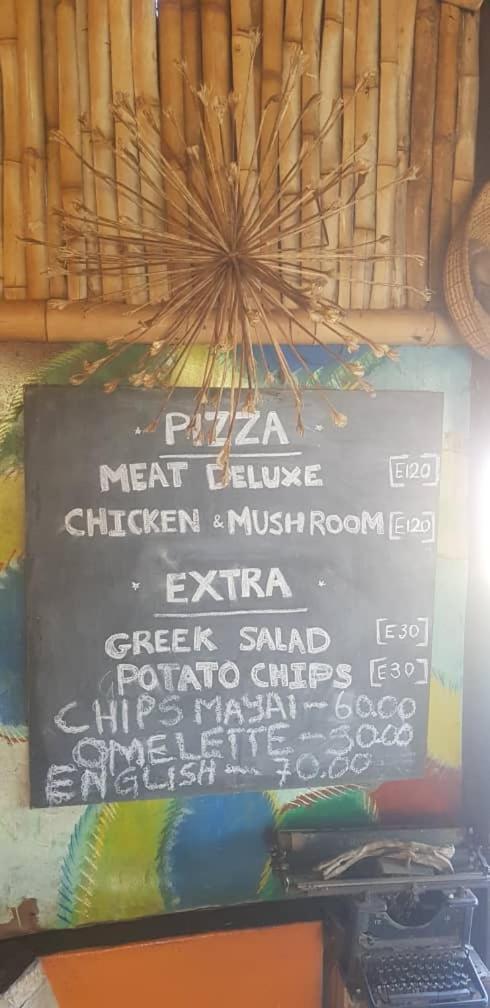 PIZZA
MEAT DELUXE [E120]
CHICKEN & MUSHROOM [E120]
EXTRA
GREEK SALAD [E30]
POTATO CHIPS [E30]
CHIPS MAYAI - 60.00
OMELETTE - 30.00
ENGLISH - 70.00